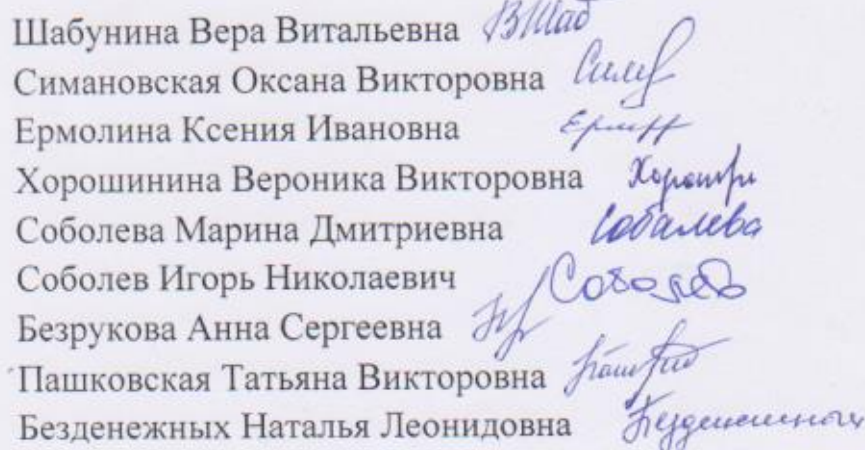 Шабунина Вера Витальевна ВШаб
Симановская Оксана Викторовна
Ермолина Ксения Ивановна
Хорошинина Вероника Викторовна
Соболева Марина Дмитриевна Соболева
Соболев Игорь Николаевич Соболев
Безрукова Анна Сергеевна
Пашковская Татьяна Викторовна
Безденежных Наталья Леонидовна Безденежных